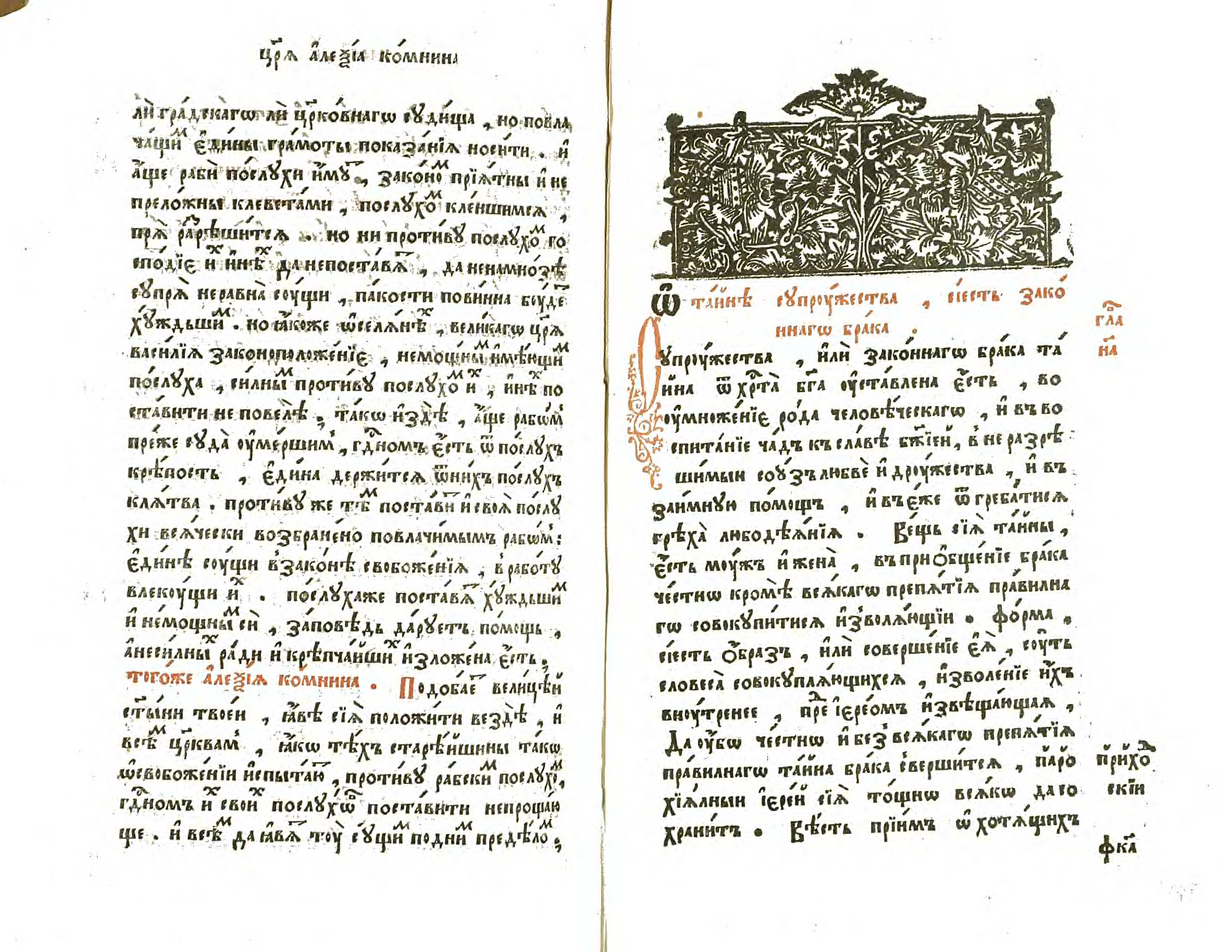 цр҃ѧ а҆леѯі́а комнина
ли гра́дскагѡ ли цр҃ко́внагѡ сꙋди́ща , но повла
чащиⷨ є҆ди́ны грамоты показа́нїѧ носи́ти . и҆
а҆ще раби по́слꙋхи и҆мꙋ́ , зако́ноⷨ прїѧ́тны и҆ не
прело́жны клевета́ми , послꙋхоⷨ кле́ншимсѧ ,
прѧ̀ разрѣши́тсѧ . но ни проти́вꙋ послꙋхоⷨ го
спо́дїє иⷯ и҆нѣⷯ да непоста́вѧ , да не на мно́зѣ
сꙋпрѧ̀ неравна̀ соу́щи , па́кости пови́нна бꙋ́де
хꙋ́ждьшиⷨ . но ꙗ҆́коже ѡ҆ селѧ́нѣⷯ , вели́кагѡ цр҃ѧ̀
васи́лїѧ законоположе́нїє , немощны́ⷨ и҆мѣ́ющиⷨ
по́слꙋха , си́лныⷨ проти́вꙋ послꙋхоⷨ иⷯ , и҆нѣⷯ по
ста́вити не повелѣ̀ , та́кѡ и҆ здѣ̀ , а҆́ще рабѡ́м
пре́же сꙋда̀ ᲂу҆ме́ршим , гдⷭ҇номъ є҆́сть ѿ по́слꙋхъ
крѣ́пость , є҆ди́на держи́тсѧ ѿ ни́хъ по́слꙋхъ
клѧ́тва . проти́вꙋ же тѣⷨ поста́ви и҆ своѧ̀ по́слꙋ
хи всѧ́чески возбране́но повлачи́мымъ рабѡ́м :
є҆ди́нѣ соу́щи в̾ зако́нѣ свобоже́нїѧ , в̾ рабо́тꙋ
влекоу́щи иⷯ . по́слꙋха же поста́вѧ хꙋ́ждьшиⷨ
и҆ немощны́ⷨ сѝ , за́повѣдь да́рꙋетъ по́мощь ,
а҆ не си́лныⷯ ра́ди и҆ крѣпча́йшиⷯ и҆зло́жена є҆́сть .
тогѡ́же а҆леѯі́ѧ комни́на . Подоба́є вели́цѣй
ст҃ы́ни твое́й , ꙗ҆́вѣ сїѧ̀ положи́ти вездѣ̀ , и҆
всѣⷨ цр҃квам , ꙗ҆́кѡ тѣ́хъ старѣ́йшины та́кѡ
ѡ҆ свобожде́нїи и҆спыта́ю , проти́вꙋ рабскиⷨ послꙋхоⷨ ,
гдⷭ҇номъ иⷯ своиⷯ послꙋхѡⷡ поста́вити непроща́ю
ще . и҆ всѣⷨ да ꙗ҆́вѧ тоу̀ сꙋ́щиⷨ под ниⷨ предѣ́лоⷨ ,
Ѡ҆ та́йнѣ сꙋпроу́жества , сі́есть зако́
ннагѡ бра́ка .
гла
н҃а
Сꙋпроу́жества , и҆лѝ зако́ннагѡ бра́ка та́
йна ѿ хрⷭ҇та̀ бг҃а ᲂу҆ста́влена є҆́сть , во
ᲂу҆множе́нїє ро́да человѣ́ческагѡ , и҆ въ во
спита́нїе ча́дъ къ сла́вѣ бж҃їей , в̾ не разрѣ
ши́мый соу́зъ любвѐ и҆ дроу́жества , и҆ въ
заи́мнꙋю по́мощъ , и҆ въ є҆́же ѿгреба́тисѧ
грѣха̀ любодѣѧ́нїѧ . Ве́щь сїѧ̀ та́йны ,
є҆́сть моу́жъ и҆ жена̀ , въ прио҆бще́нїе бра́ка
че́стнѡ кромѣ̀ всѧ́кагѡ препѧ́тїѧ пра́вилна
гѡ совокꙋпи́тисѧ и҆зволѧ́ющїи . фо́рма ,
сі́есть ѻ҆́бразъ , и҆лѝ соверше́нїе є҆ѧ̀ , сꙋ́ть
словеса̀ совокꙋплѧ́ющихсѧ , и҆зволе́нїе и҆́хъ
внꙋ́тренее , преⷣ і҆ере́омъ и҆звѣща́ющаѧ ,
Да ᲂу҆́бѡ че́стнѡ и҆ без̾ всѧ́кагѡ препѧ́тїѧ
пра́вилнагѡ та́йна бра́ка сверши́тсѧ , паро
хїѧ́лный і҆ере́й сїѧ̀ то́щнѡ всѧ́кѡ да со
храни́тъ . Вѣ́сть прїи́мъ ѡ҆ хотѧ́щихъ
прихоⷣ
скїи
фк҃а